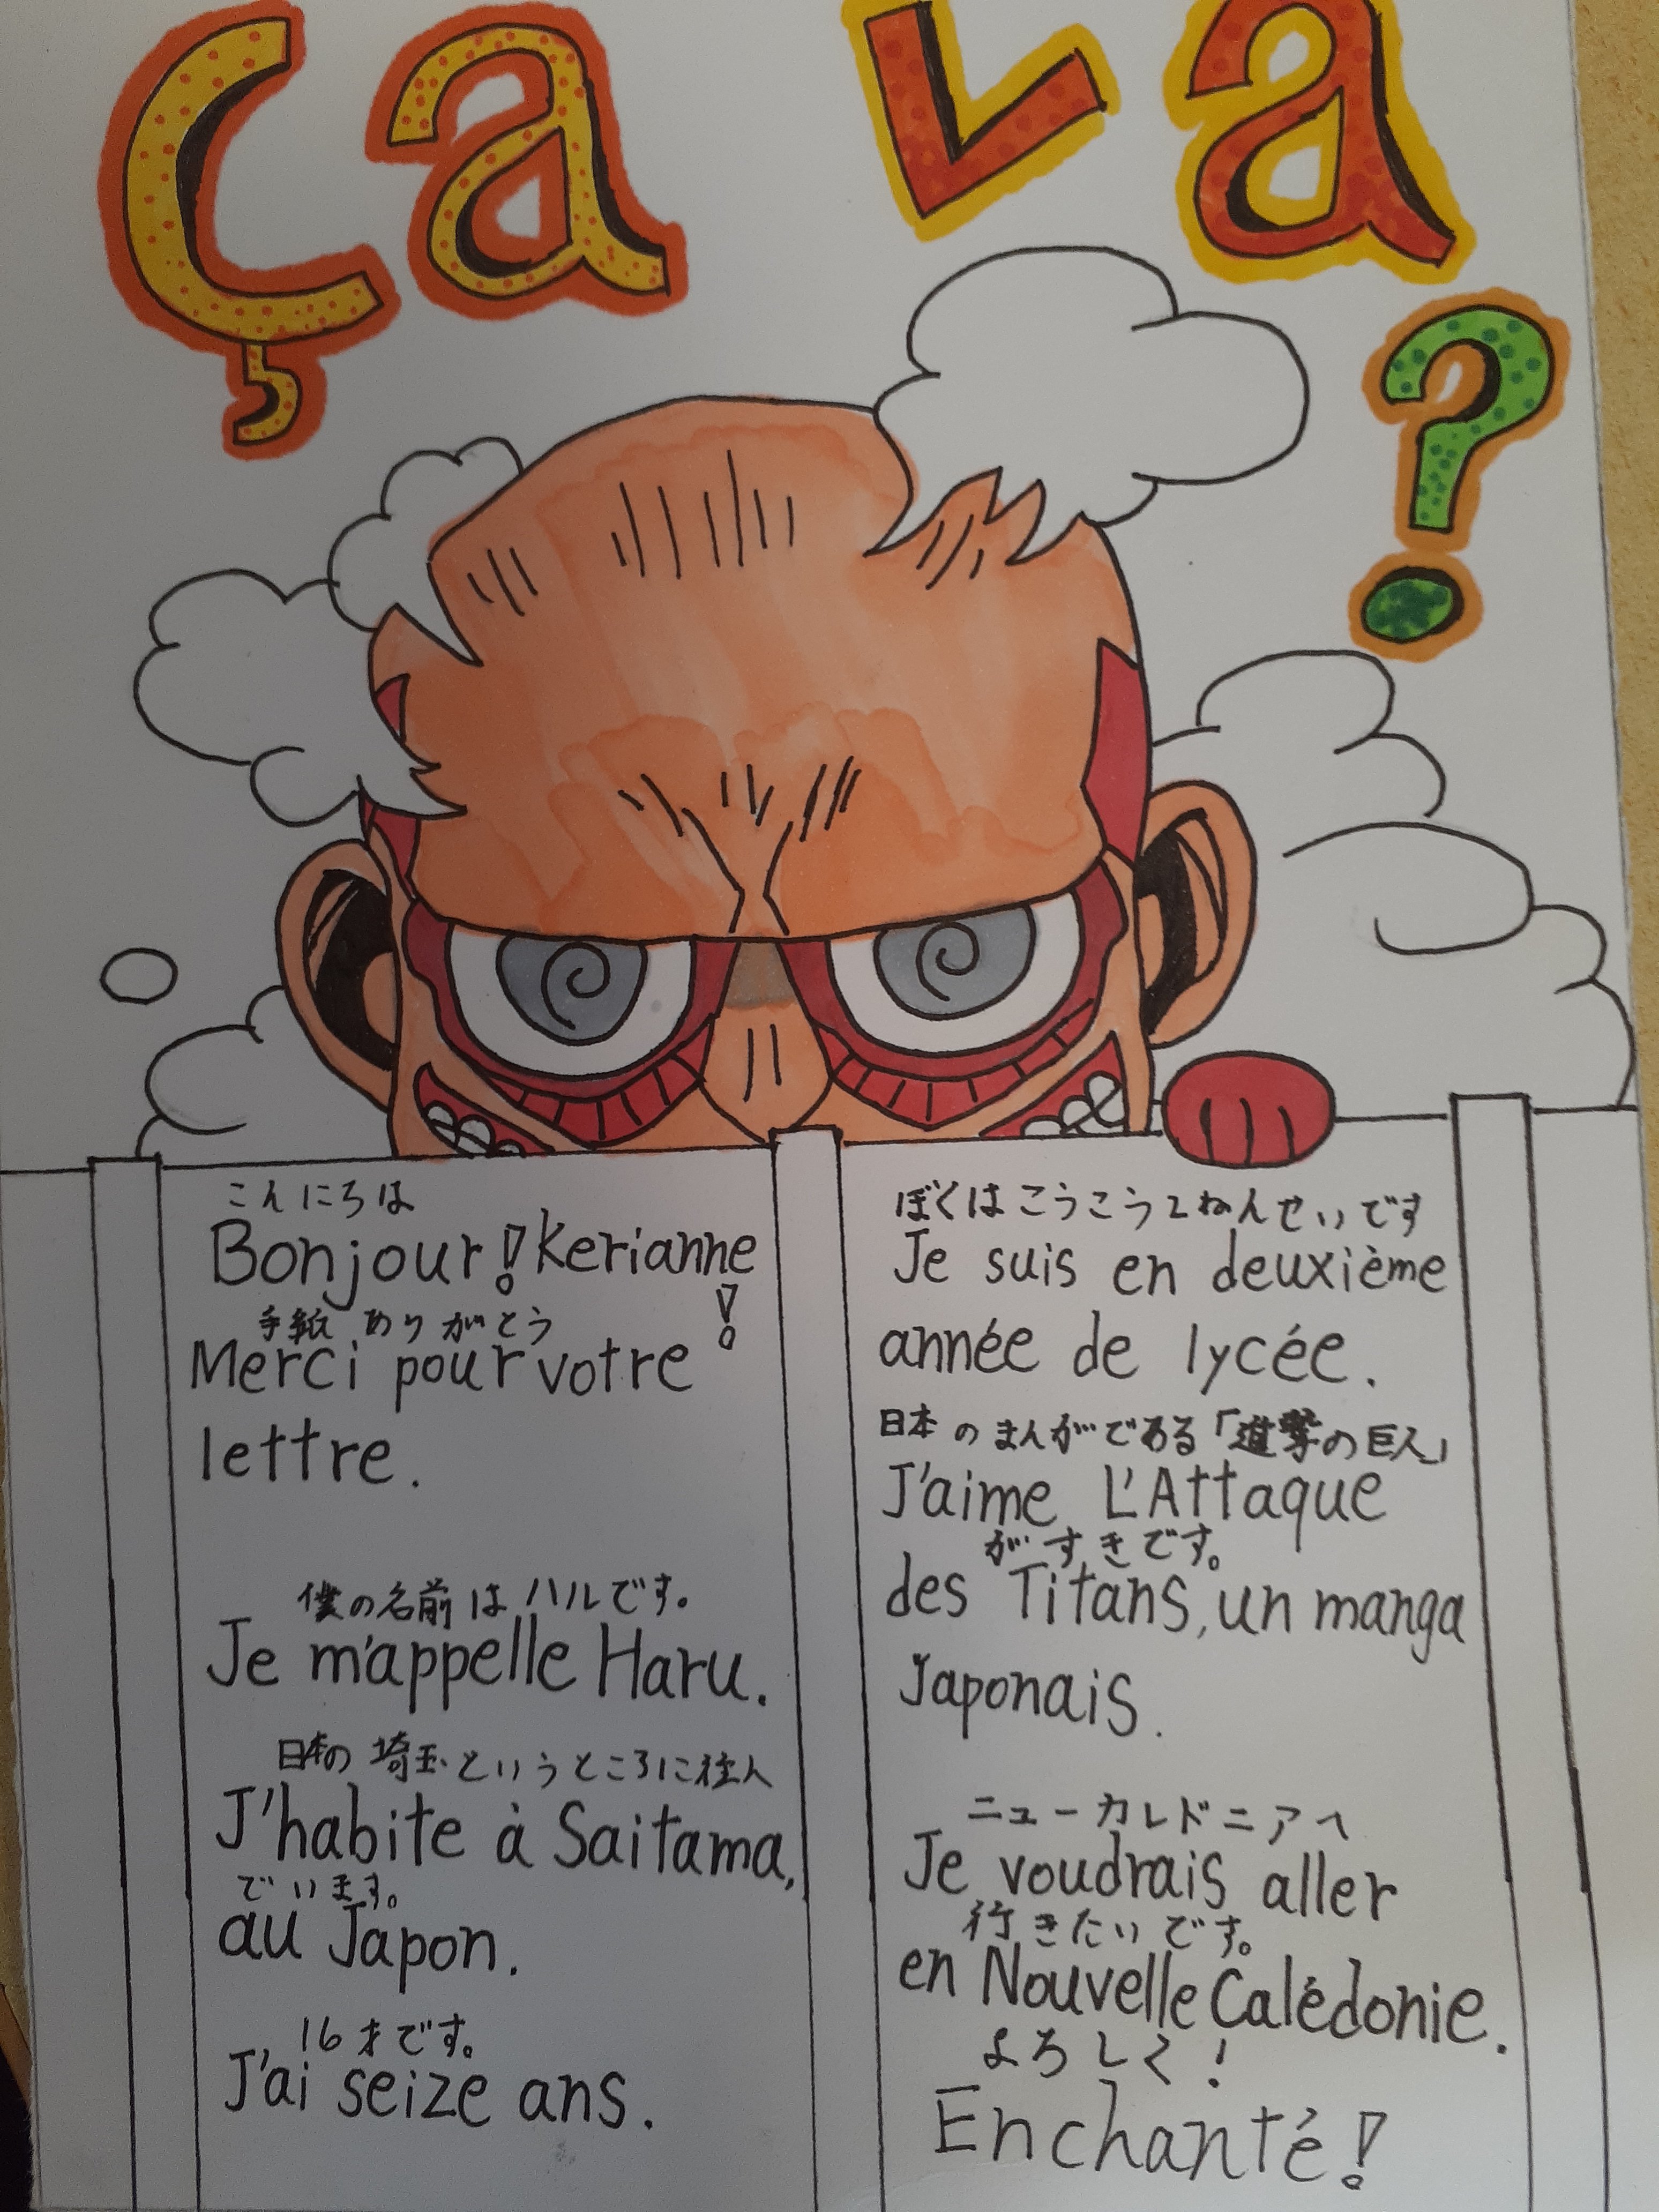 Ça va
?
こんにちは
Bonjour! Kerianne!
手紙 ありがとう
Merci pour votre
lettre.
僕の名前はハルです。
Je m'appelle Haru.
日本の埼玉というところに住ん
J'habite à Saitama,
でいます。
au Japon.
16才です。
J'ai seize ans.
ぼくはこうこう2ねんせいです
Je suis en deuxième
année de lycée.
日本のまんがである「進撃の巨人」
J'aime L'Attaque
がすきです。
des Titans, un manga
Japonais.
ニューカレドニアへ
Je voudrais aller
行きたいです。
en Nouvelle Calédonie.
よろしく!
Enchanté!